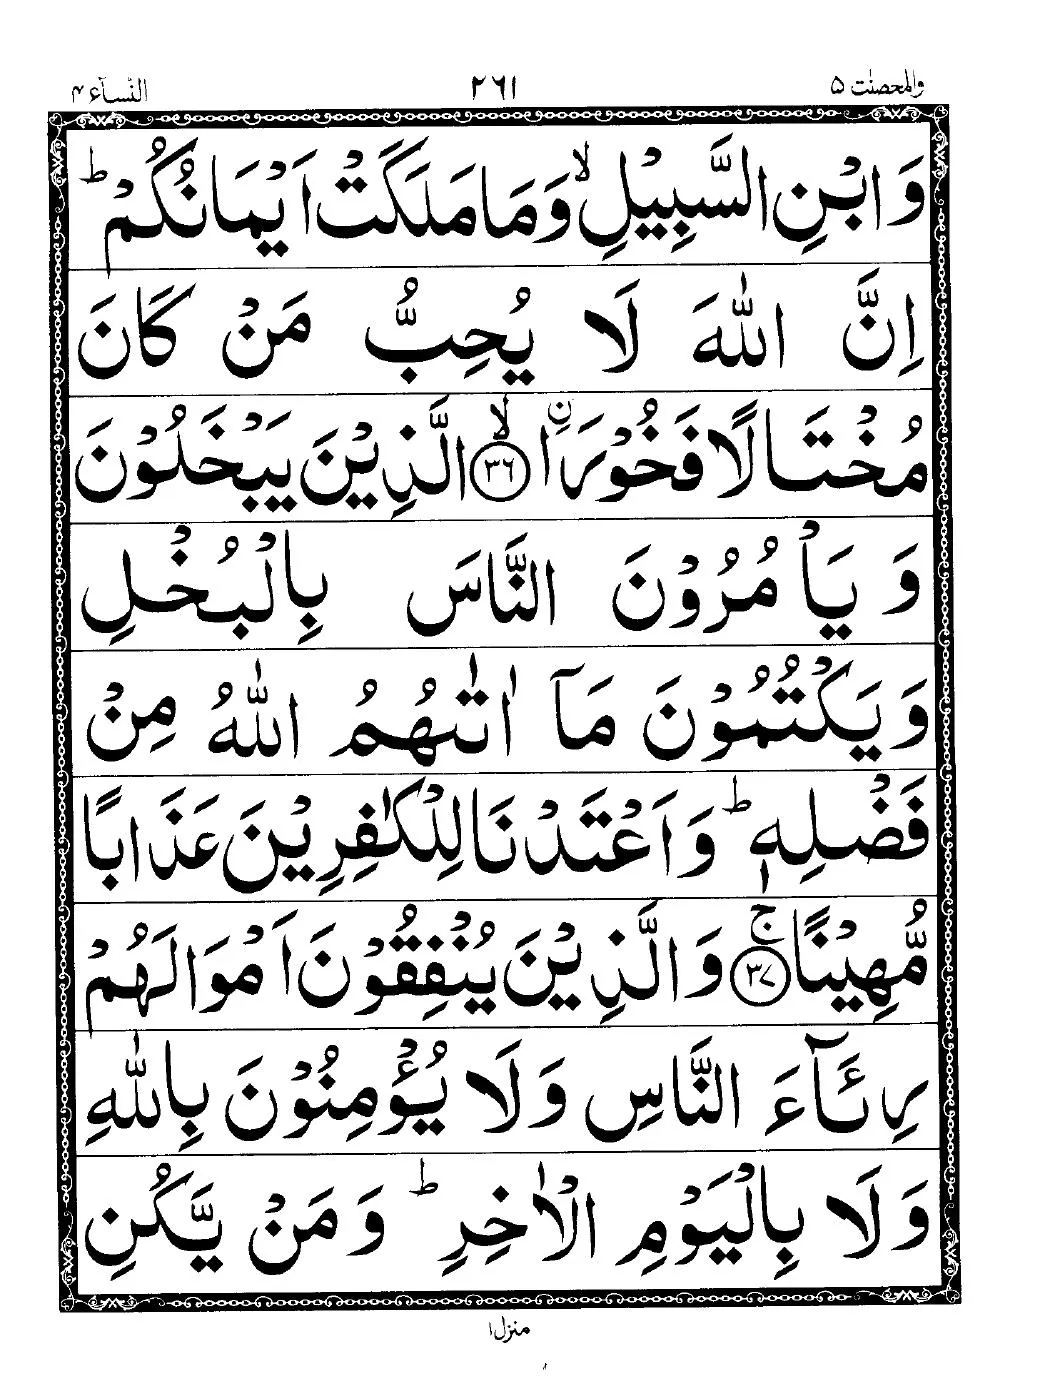 والمحصنٰت ۵
۲۶۱
النسآء ۴
وَابْنِ السَّبِيْلِ ۙ وَمَا مَلَكَتْ اَيْمَانُكُمْ ؕ
اِنَّ اللّٰهَ لَا يُحِبُّ مَنْ كَانَ
مُخْتَالًا فَخُوْرَا ۨ ۙ ﴿۳۶﴾ الَّذِيْنَ يَبْخَلُوْنَ
وَيَاْمُرُوْنَ النَّاسَ بِالْبُخْلِ
وَيَكْتُمُوْنَ مَآ اٰتٰىهُمُ اللّٰهُ مِنْ
فَضْلِهٖ ؕ وَاَعْتَدْنَا لِلْكٰفِرِيْنَ عَذَابًا
مُّهِيْنًا ۚ ﴿۳۷﴾ وَالَّذِيْنَ يُنْفِقُوْنَ اَمْوَالَهُمْ
رِئَآءَ النَّاسِ وَلَا يُؤْمِنُوْنَ بِاللّٰهِ
وَلَا بِالْيَوْمِ الْاٰخِرِ ؕ وَمَنْ يَّكُنِ
منزل ۱